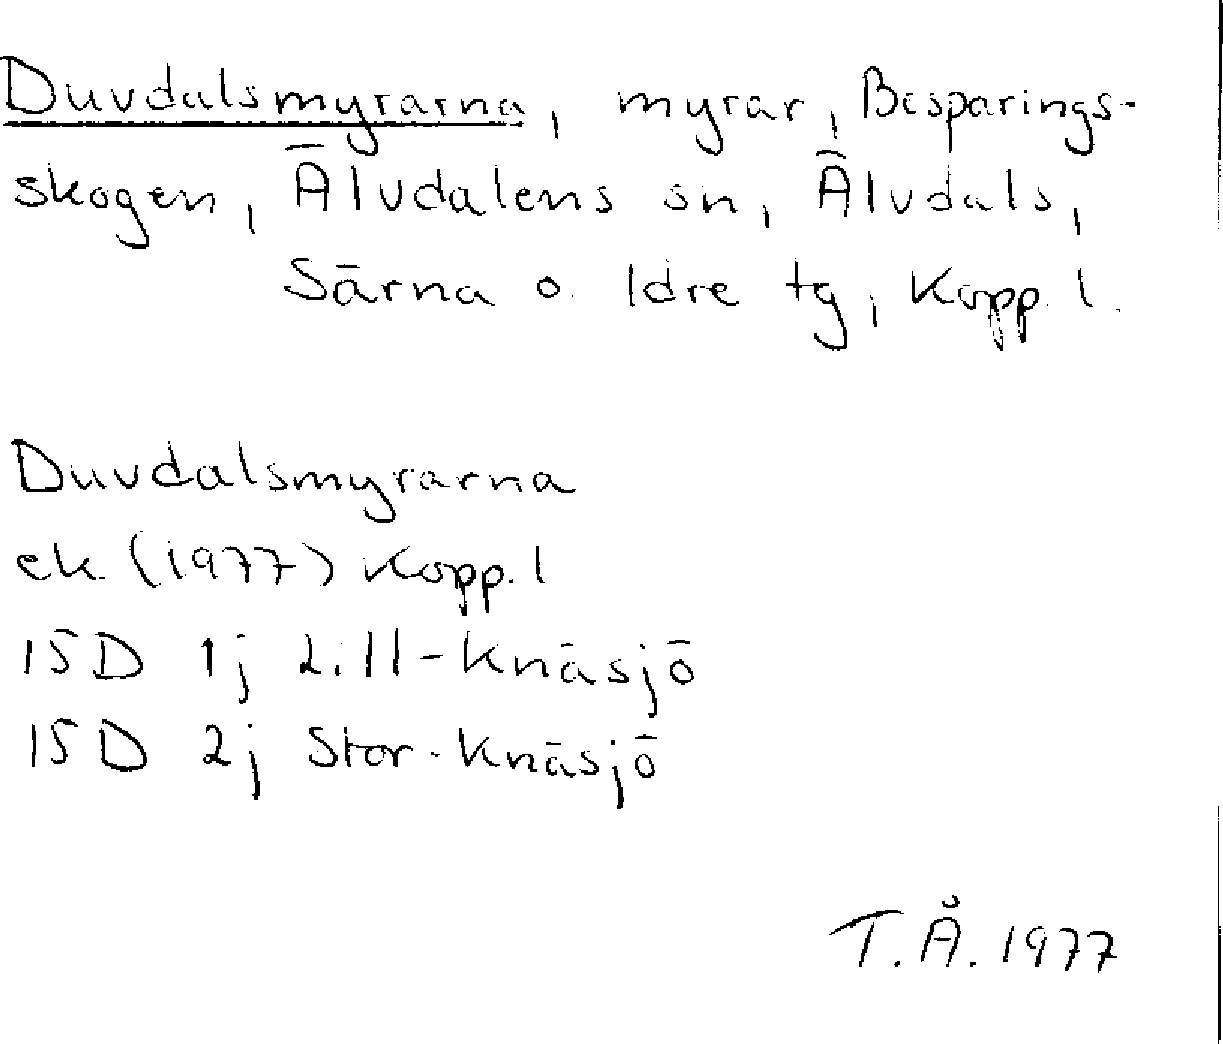 Duvdalsmyrarna, myrar, Besparings-
skogen, Älvdalens sn, Älvdals,
Särna o. Idre tg, Kopp. l.
Duvdalsmyrarna
ek. (1977) Kopp. l
15D 1j Lill-Knäsjö
15D 2j Stor-Knäsjö
T.Å. 1977